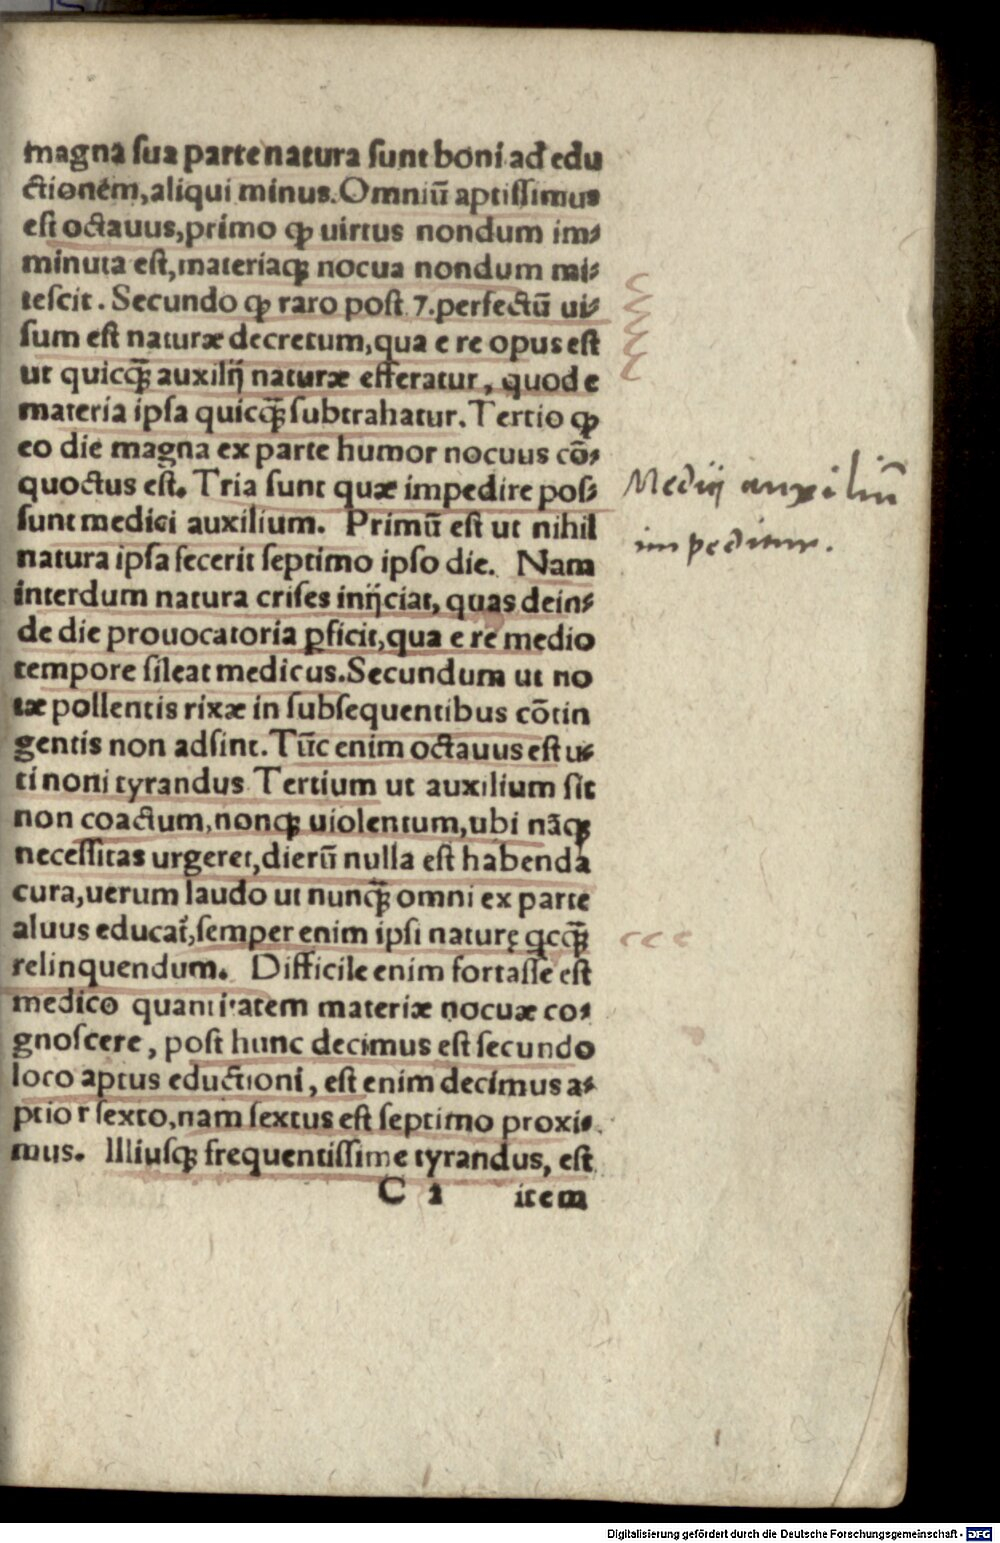 magna sua parte natura sunt boni ad edu
ctionem, aliqui minus. Omniū aptissimus
est octauus, primo ꝙ uirtus nondum im⸗
minuta est, materiaq́ꝫ nocua nondum mi⸗
tescit. Secundo ꝙ raro post 7. perfectū ui⸗
sum est naturæ decretum, qua e re opus est
ut quicq̄ꝫ auxilij naturæ efferatur, quod e
materia ipsa quicq̄ꝫ subtrahatur. Tertio ꝙ
eo die magna ex parte humor nocuus cō⸗
quoctus est. Tria sunt quæ impedire pos⸗
sunt medici auxilium. Primū est ut nihil
natura ipsa fecerit septimo ipso die. Nam
interdum natura crises inijciat, quas dein⸗
de die prouocatoria ꝑficit, qua e re medio
tempore sileat medicus. Secundum ut no
tæ pollentis rixæ in subsequentibus cōtin
gentis non adsint. Tūc enim octauus est u⸗
ti noni tyrandus Tertium ut auxilium sit
non coactum, nonqꝫ uiolentum, ubi nāqꝫ
necessitas urgeret, dierū nulla est habenda
cura, uerum laudo ut nunq̄ꝫ omni ex parte
aluus educat̃, semper enim ipsi naturę qcq̄ꝫ
relinquendum. Difficile enim fortasse est
medico quantitatem materiæ nocuæ co⸗
gnoscere, post hunc decimus est secundo
loco aptus eductioni, est enim decimus a⸗
ptior sexto, nam sextus est septimo proxi⸗
mus. Illiusqꝫ frequentissime tyrandus, est
C 2 item
Medij auxiliū
impeditur.
Digitalisierung gefördert durch die Deutsche Forschungsgemeinschaft - DFG